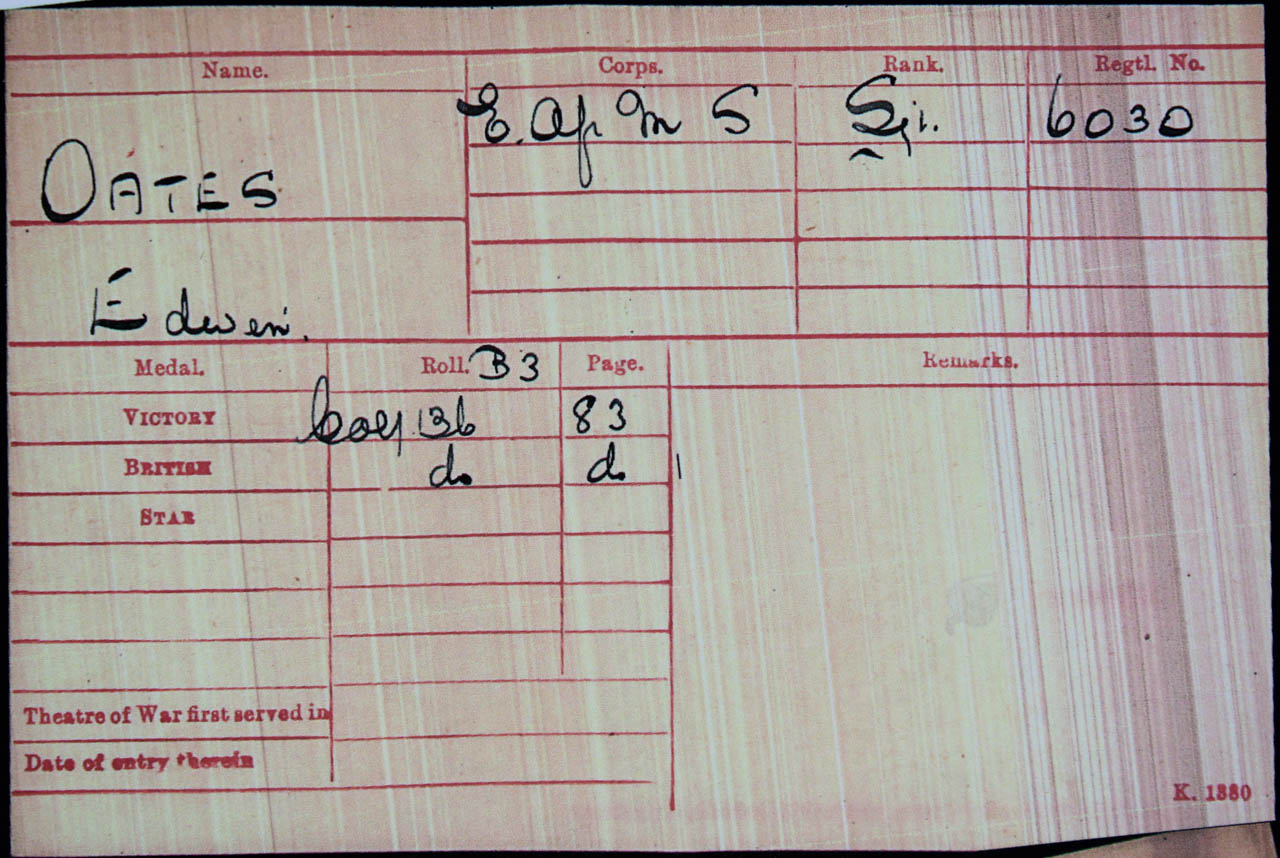 Name. Corps. Rank. Regtl. No.
E. Af. M S Sjt. 6030
OATES
Edwin.
Medal. Roll. B3 Page. Remarks.
VICTORY Col/136 83
BRITISH do do
STAR
Theatre of War first served in
Date of entry therein
K. 1380